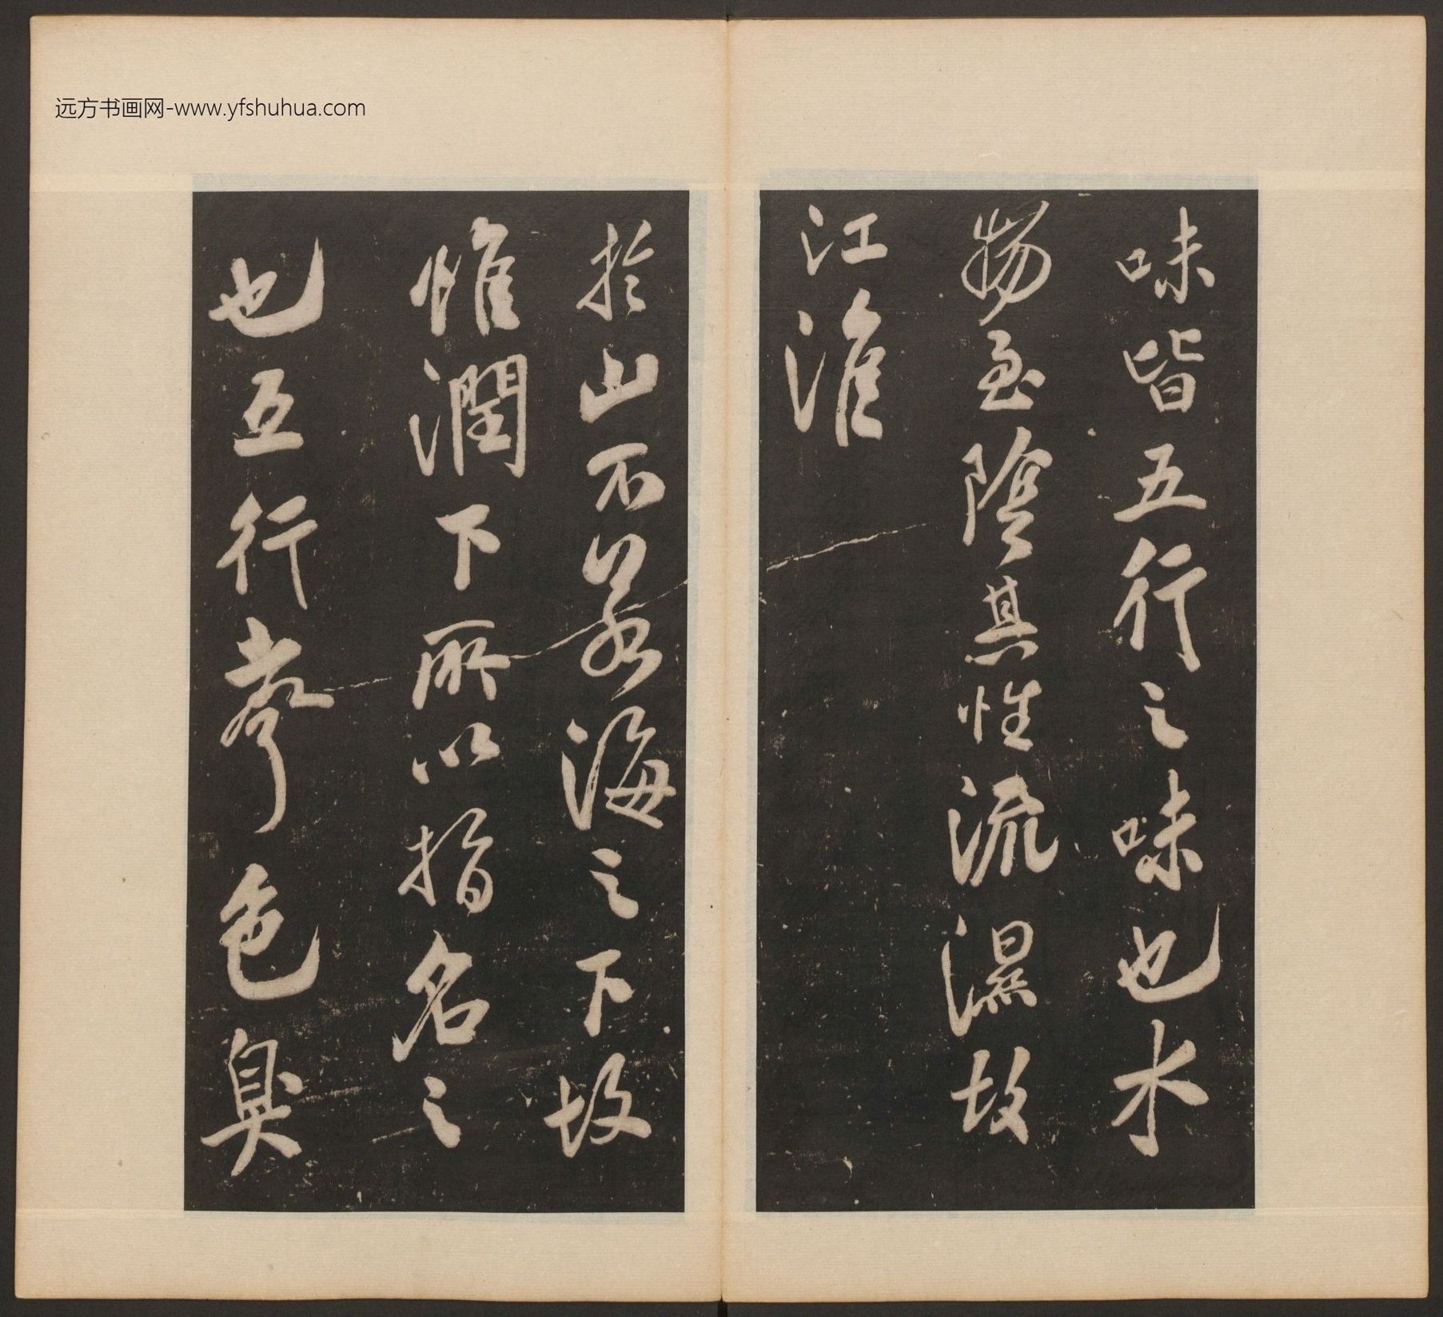 远方书画网-www.yfshuhua.com
味皆五行之味也水
物至陰其性流濕故
江淮
於山不若海之下故
惟潤下所以指名之
也五行聲色臭